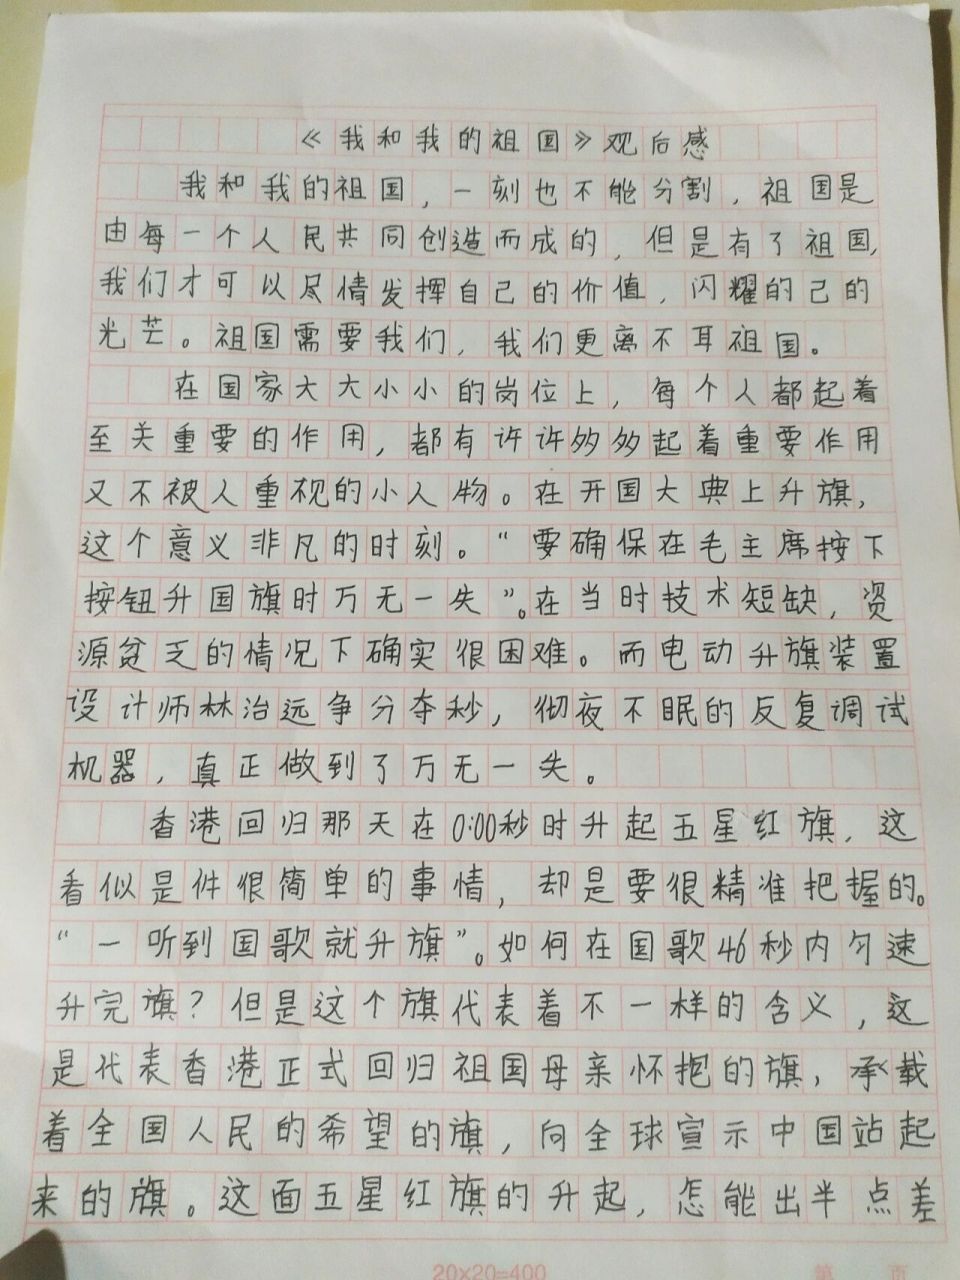 《我和我的祖国》观后感
我和我的祖国，一刻也不能分割，祖国是
由每一个人民共同创造而成的，但是有了祖国,
我们才可以尽情发挥自己的价值，闪耀的己的
光芒。祖国需要我们，我们更离不耳祖国。
在国家大大小小的岗位上，每个人都起着
至关重要的作用，都有许许多多起着重要作用
又不被人重视的小人物。在开国大典上升旗，
这个意义非凡的时刻。“要确保在毛主席按下
按钮升国旗时万无一失”。在当时技术短缺，资
源贫乏的情况下确实很困难。而电动升旗装置
设计师林治远争分夺秒，彻夜不眠的反复调试
机器，真正做到了万无一失。
香港回归那天在0:00秒时升起五星红旗，这
看似是件很简单的事情，却是要很精准把握的。
“一听到国歌就升旗”。如何在国歌46秒内匀速
升完旗？但是这个旗代表着不一样的含义，这
是代表香港正式回归祖国母亲怀抱的旗，承载
着全国人民的希望的旗，向全球宣示中国站起
来的旗。这面五星红旗的升起，怎能出半点差
20×20=400
第 页